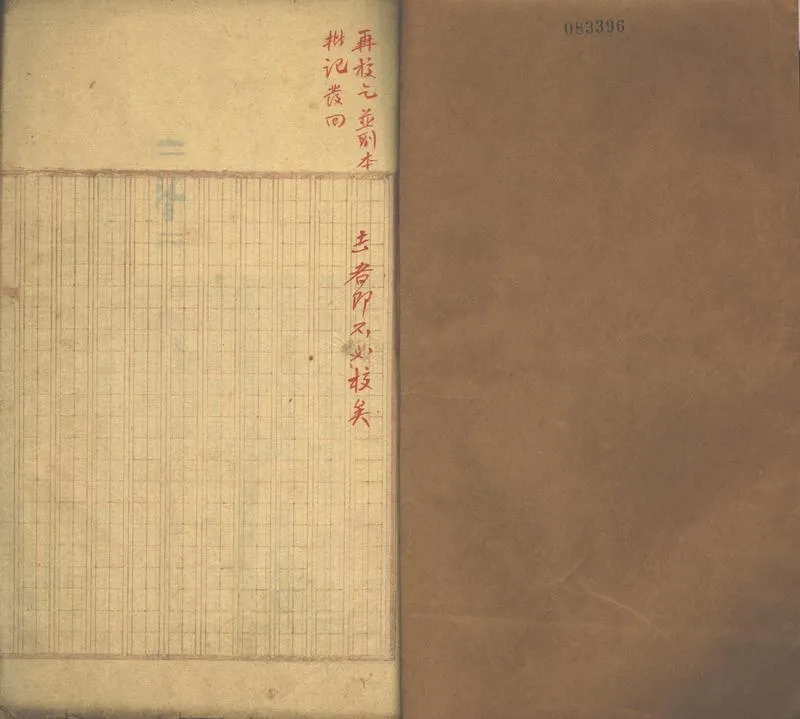 083396
再校乞並副本
批记发回
去者即不必校矣